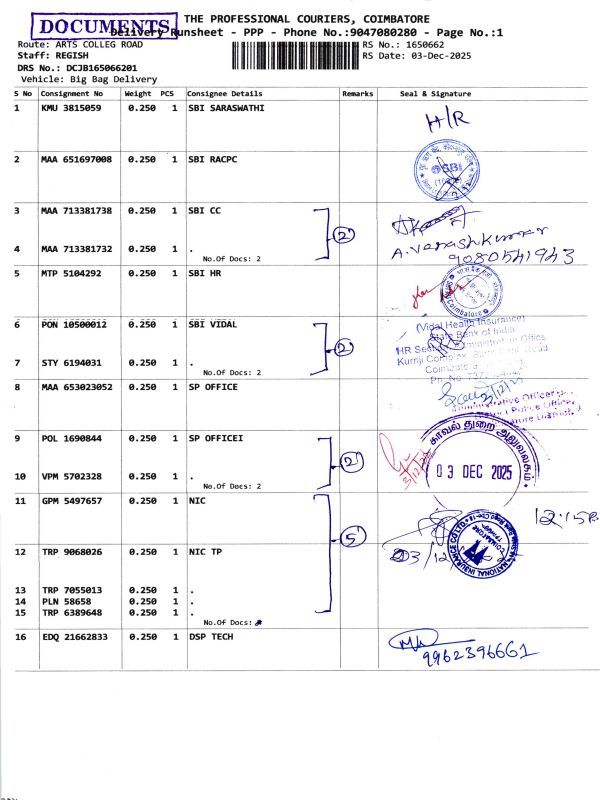 DOCUMENTS
THE PROFESSIONAL COURIERS, COIMBATORE
Delivery Runsheet - PPP - Phone No.:9047080280 - Page No.:1
Route: ARTS COLLEG ROAD
RS No.: 1650662
Staff: REGISH
RS Date: 03-Dec-2025
DRS No.: DCJB165066201
Vehicle: Big Bag Delivery
S No Consignment No Weight PCS Consignee Details Remarks Seal & Signature
1 KMU 3815059 0.250 1 SBI SARASWATHI
H/R
2 MAA 651697008 0.250 1 SBI RACPC
SBI
3 MAA 713381738 0.250 1 SBI CC
2
4 MAA 713381732 0.250 1 .
No.Of Docs: 2
9080541943
5 MTP 5104292 0.250 1 SBI HR
Coimbatore
6 PON 10500012 0.250 1 SBI VIDAL
2
(Vidal Health Insurance)
State Bank of India
HR Section, Administrative Office
7 STY 6194031 0.250 1 .
No.Of Docs: 2
8 MAA 653023052 0.250 1 SP OFFICE
Administrative Officer
9 POL 1690844 0.250 1 SP OFFICEI
2
காவல் துறை அலுவலகம்
03 DEC 2025
10 VPM 5702328 0.250 1 .
No.Of Docs: 2
11 GPM 5497657 0.250 1 NIC
5
12:15
NATIONAL INSURANCE CO LTD
COIMBATORE
12 TRP 9068026 0.250 1 NIC TP
13 TRP 7055013 0.250 1 .
14 PLN 58658 0.250 1 .
15 TRP 6389648 0.250 1 .
No.Of Docs:
16 EDQ 21662833 0.250 1 DSP TECH
9962396661